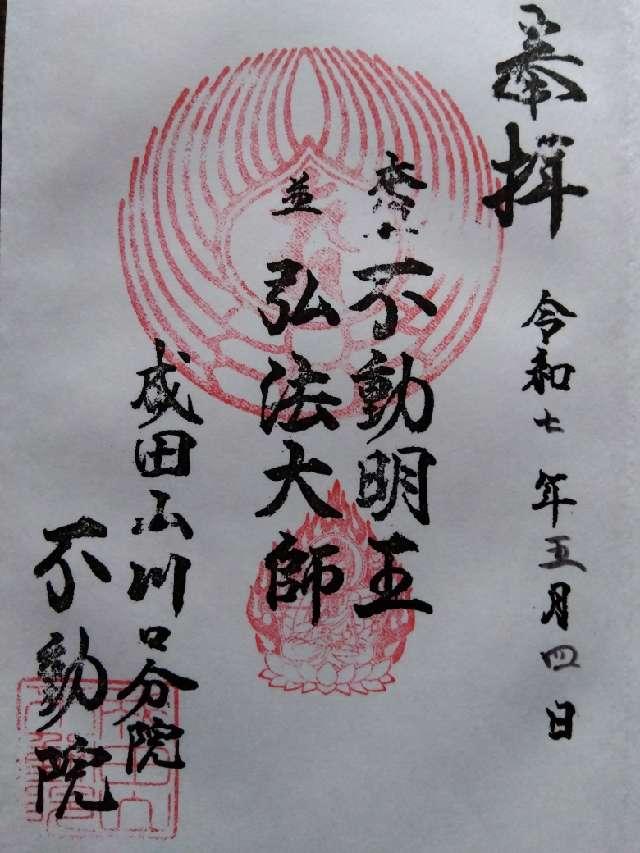 奉拝
令和七年五月四日
本尊不動明王
並弘法大師
成田山川口分院
不動院